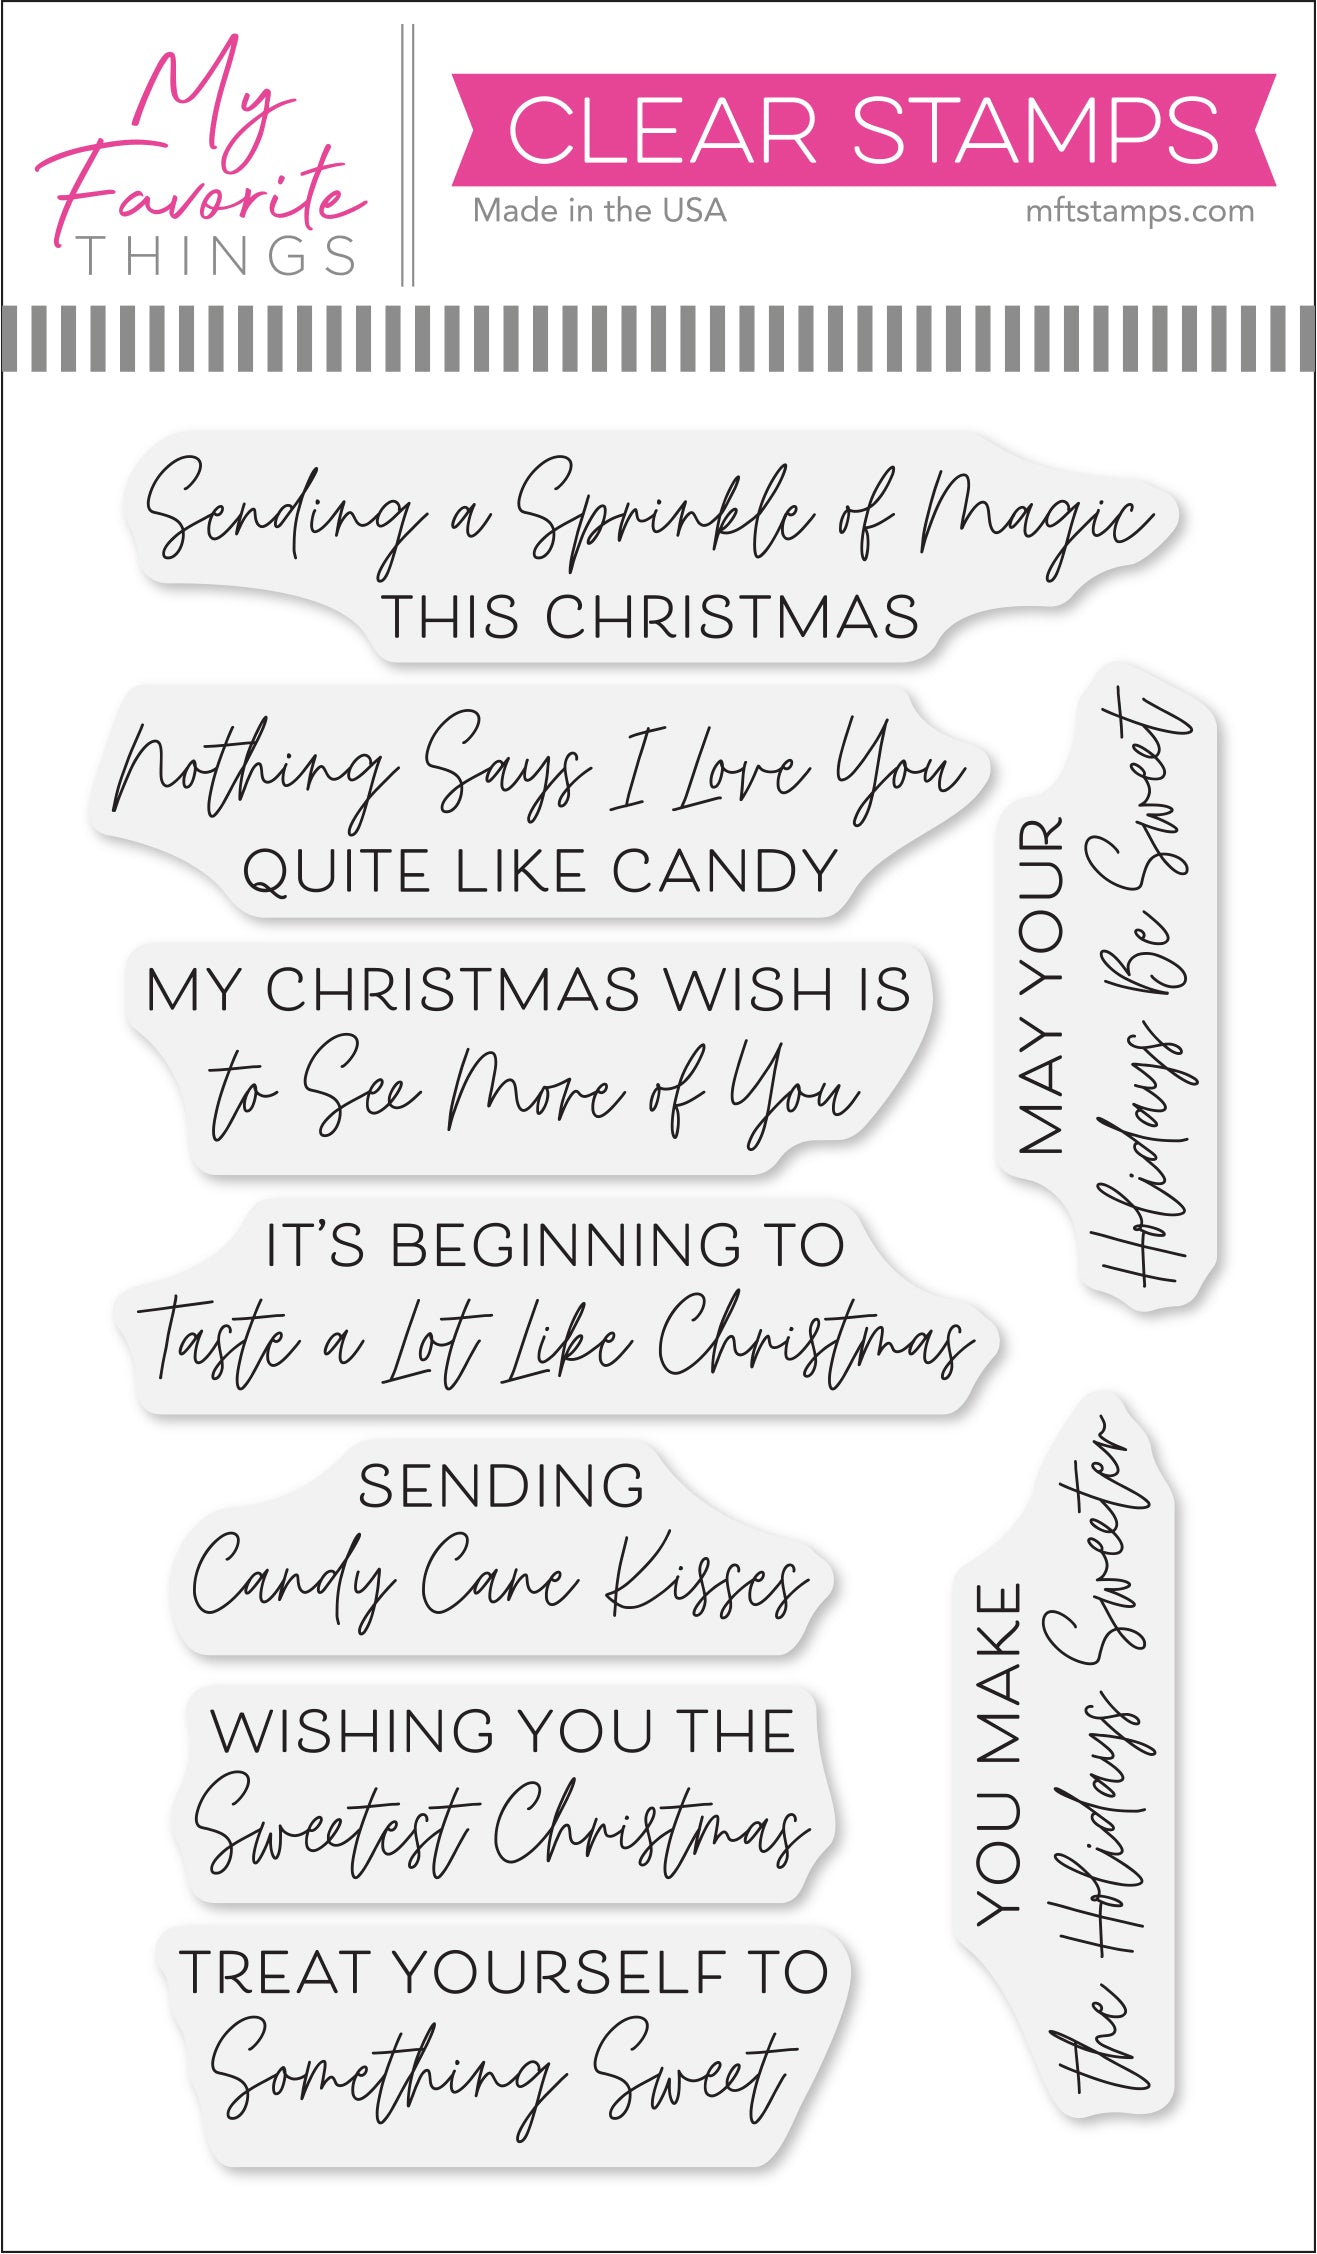 My
Favorite
THINGS
CLEAR STAMPS
Made in the USA
mftstamps.com
Sending a Sprinkle of Magic
THIS CHRISTMAS
Nothing Says I Love You
QUITE LIKE CANDY
MAY YOUR
Holidays Be Sweet
MY CHRISTMAS WISH IS
to See More of You
IT'S BEGINNING TO
Taste a Lot Like Christmas
SENDING
Candy Cane Kisses
YOU MAKE
the Holidays Sweeter
WISHING YOU THE
Sweetest Christmas
TREAT YOURSELF TO
Something Sweet